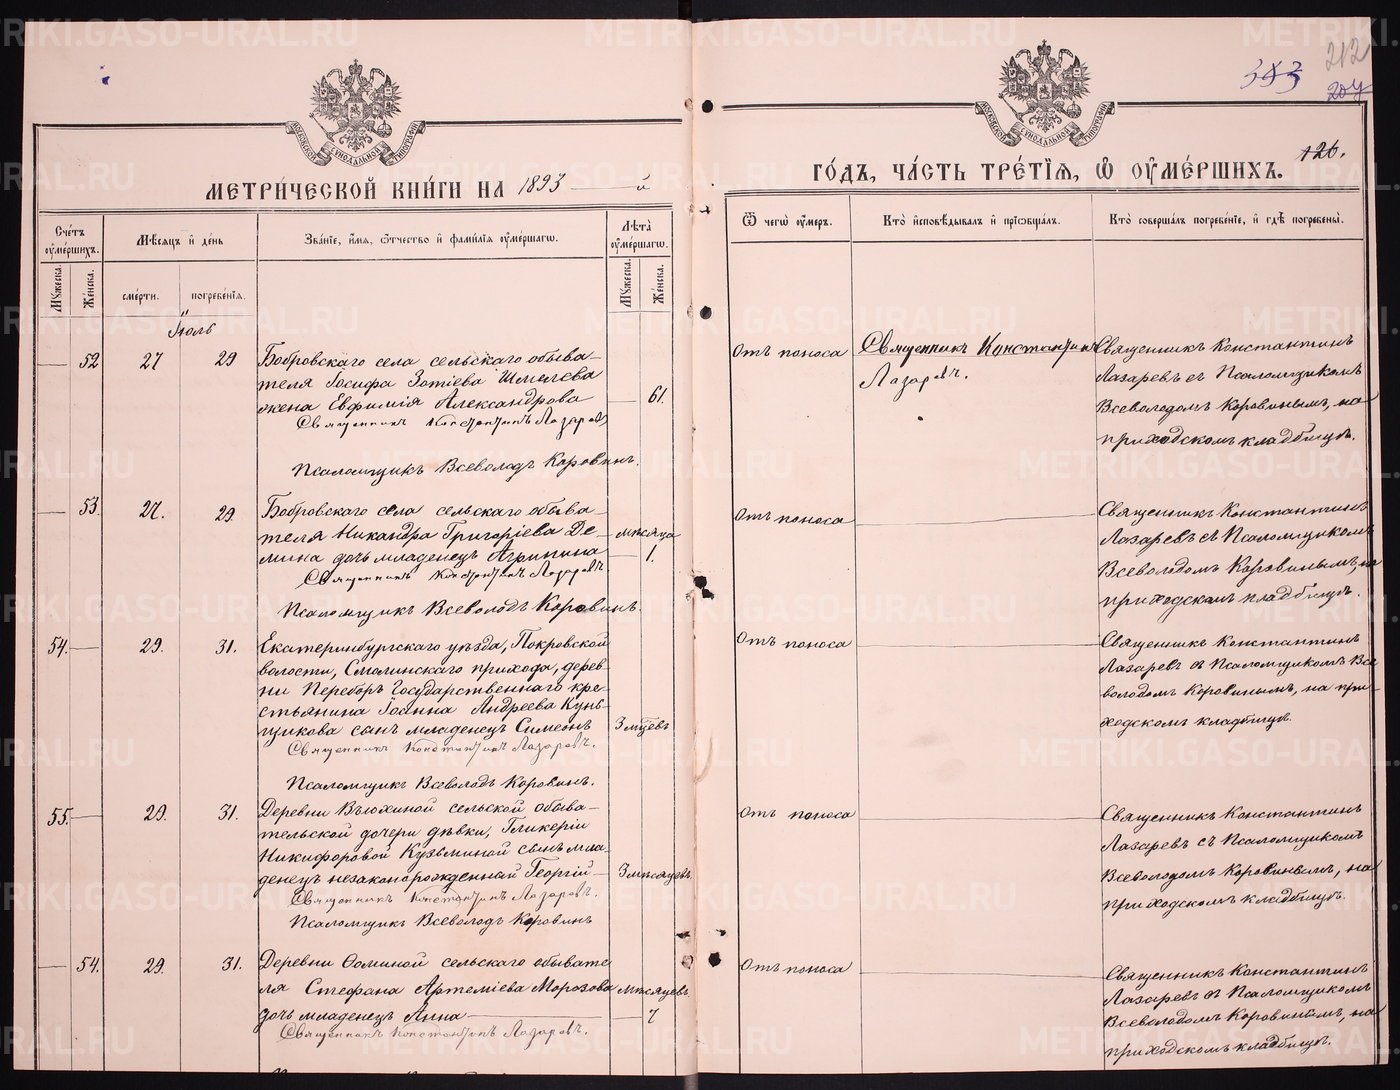 METRIKI.GASO-URAL.RU
212
204
МОСКОВСКОЙ СѴНОДАЛЬНОЙ ТИПОГРАФІИ
МОСКОВСКОЙ СѴНОДАЛЬНОЙ ТИПОГРАФІИ
МЕТРИ́ЧЕСКОЙ КНИ́ГИ НА 1893 — й
ГО́ДЪ, ЧА́СТЬ ТРЕ́ТІѦ, Ѽ ОУМЕ́РШИХЪ. 126.
Сче́тъ оуме́ршихъ.
Мꙋ́жеска.
Же́нска.
Мѣ́сѧцъ и҆ де́нь
сме́рти.
погребе́нїѧ.
Зва́нїе, и҆́мѧ, ѻ҆́тчество и҆ фами́лїѧ оуме́ршагѡ.
Лѣ́та оуме́ршагѡ.
Мꙋ́жеска.
Же́нска.
Ѿ чегѡ̀ оу́меръ.
Кто̀ и҆сповѣ́дывалъ и҆ прїѡбща́лъ.
Кто̀ соверша́лъ погребе́нїе, и҆ гдѣ̀ погребены̀.
Іюль
— 52 27 29
Бобровскаго села сельскаго обыва-
теля Іосифа Зотіева Шмелева
жена Евфимія Александрова — 61.
Священникъ Константинъ Лазаревъ
Псаломщикъ Всеволодъ Коровинъ.
Отъ поноса
Священникъ Константинъ
Лазаревъ.
Священникъ Константинъ
Лазаревъ съ Псаломщикомъ
Всеволодомъ Коровинымъ, на
приходскомъ кладбищѣ.
— 53. 27. 29.
Бобровскаго села сельскаго обыва-
теля Никандра Григоріева Де- мѣсяца
мина дочь младенецъ Агрипина — 1.
Священникъ Константинъ Лазаревъ
Псаломщикъ Всеволодъ Коровинъ
Отъ поноса
Священникъ Константинъ
Лазаревъ съ Псаломщикомъ
Всеволодомъ Коровинымъ, на
приходскомъ кладбищѣ.
54. — 29. 31.
Екатеринбургскаго уѣзда, Покровской
волости, Смолинскаго прихода, дерев-
ни Переборъ Государственнаго кре-
стьянина Іоанна Андреева Кунь-
щикова сынъ младенецъ Симеонъ 3 мцевъ
Священникъ Константинъ Лазаревъ.
Псаломщикъ Всеволодъ Коровинъ.
Отъ поноса
Священникъ Константинъ
Лазаревъ съ Псаломщикомъ Все
володомъ Коровинымъ, на при-
ходскомъ кладбищѣ.
55. — 29. 31.
Деревни Вьюхиной сельской обыва-
тельской дочери дѣвки, Гликеріи
Никифоровой Кузьминой сынъ мла-
денецъ незаконорожденный Георгій — 3 мѣсяцевъ
Священникъ Константинъ Лазаревъ.
Псаломщикъ Всеволодъ Коровинъ
Отъ поноса
Священникъ Константинъ
Лазаревъ съ Псаломщикомъ
Всеволодомъ Коровинымъ, на
приходскомъ кладбищѣ.
— 54. 29. 31.
Деревни Ѳоминой сельскаго обывате
ля Стефана Артеміева Морозова мѣсяцевъ
дочь младенецъ Анна — 7
Священникъ Константинъ Лазаревъ.
Отъ поноса
Священникъ Константинъ
Лазаревъ съ Псаломщикомъ
Всеволодомъ Коровинымъ, на
приходскомъ кладбищѣ.